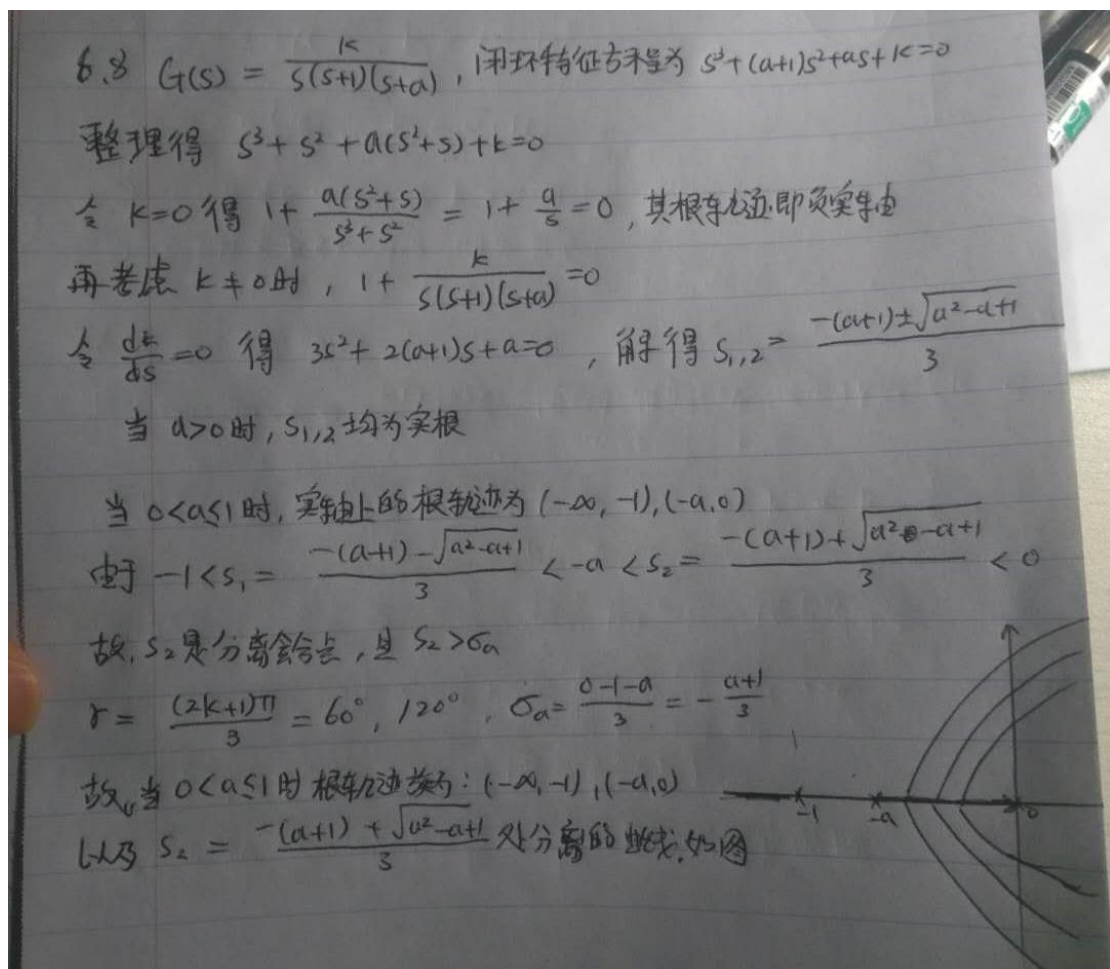 6.8 G(s) = k/(s(s+1)(s+a)), 闭环特征方程为 s³+(a+1)s²+as+k=0
整理得 s³+s²+a(s²+s)+k=0
令 k=0 得 1+ a(s²+s)/(s³+s²) = 1+ a/s =0, 其根轨迹即负实轴
再考虑 k≠0时, 1+ k/(s(s+1)(s+a)) =0
令 dk/ds =0 得 3s²+2(a+1)s+a=0, 解得 s₁,₂= (-(a+1)±√(a²-a+1))/3
当 a>0时, s₁,₂均为实根
当 0<a≤1时, 实轴上的根轨迹为 (-∞, -1), (-a, 0)
由于 -1<s₁= (-(a+1)-√(a²-a+1))/3 < -a < s₂= (-(a+1)+√(a²-a+1))/3 < 0
故, s₂是分离会合点, 且 s₂>σₐ
r= (2k+1)π/3 = 60°, 120°, σₐ= (0-1-a)/3 = -(a+1)/3
故, 当 0<a≤1时 根轨迹为: (-∞, -1), (-a, 0)
以及 s₂ = (-(a+1)+√(a²-a+1))/3 处分离的 如图
-1 -a 0